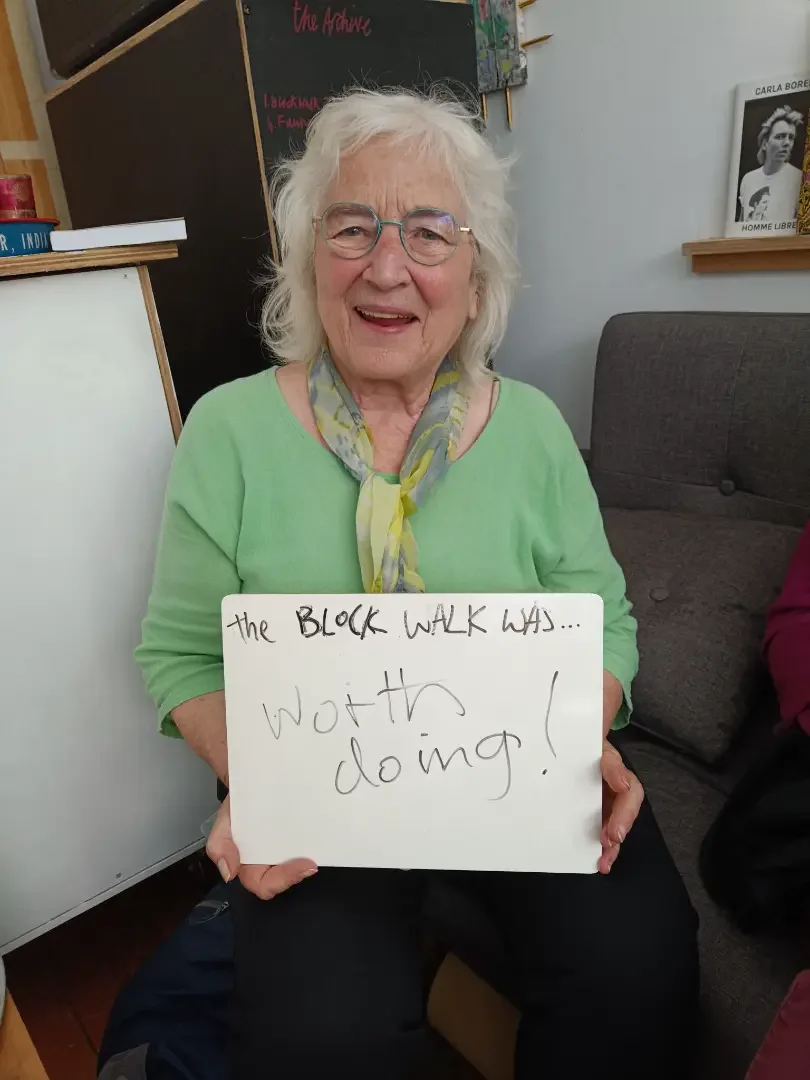 the Archive
CARLA BORE
HOMME LIBRE
R, INDI
the BLOCK WALK WAS...
Worth
doing!